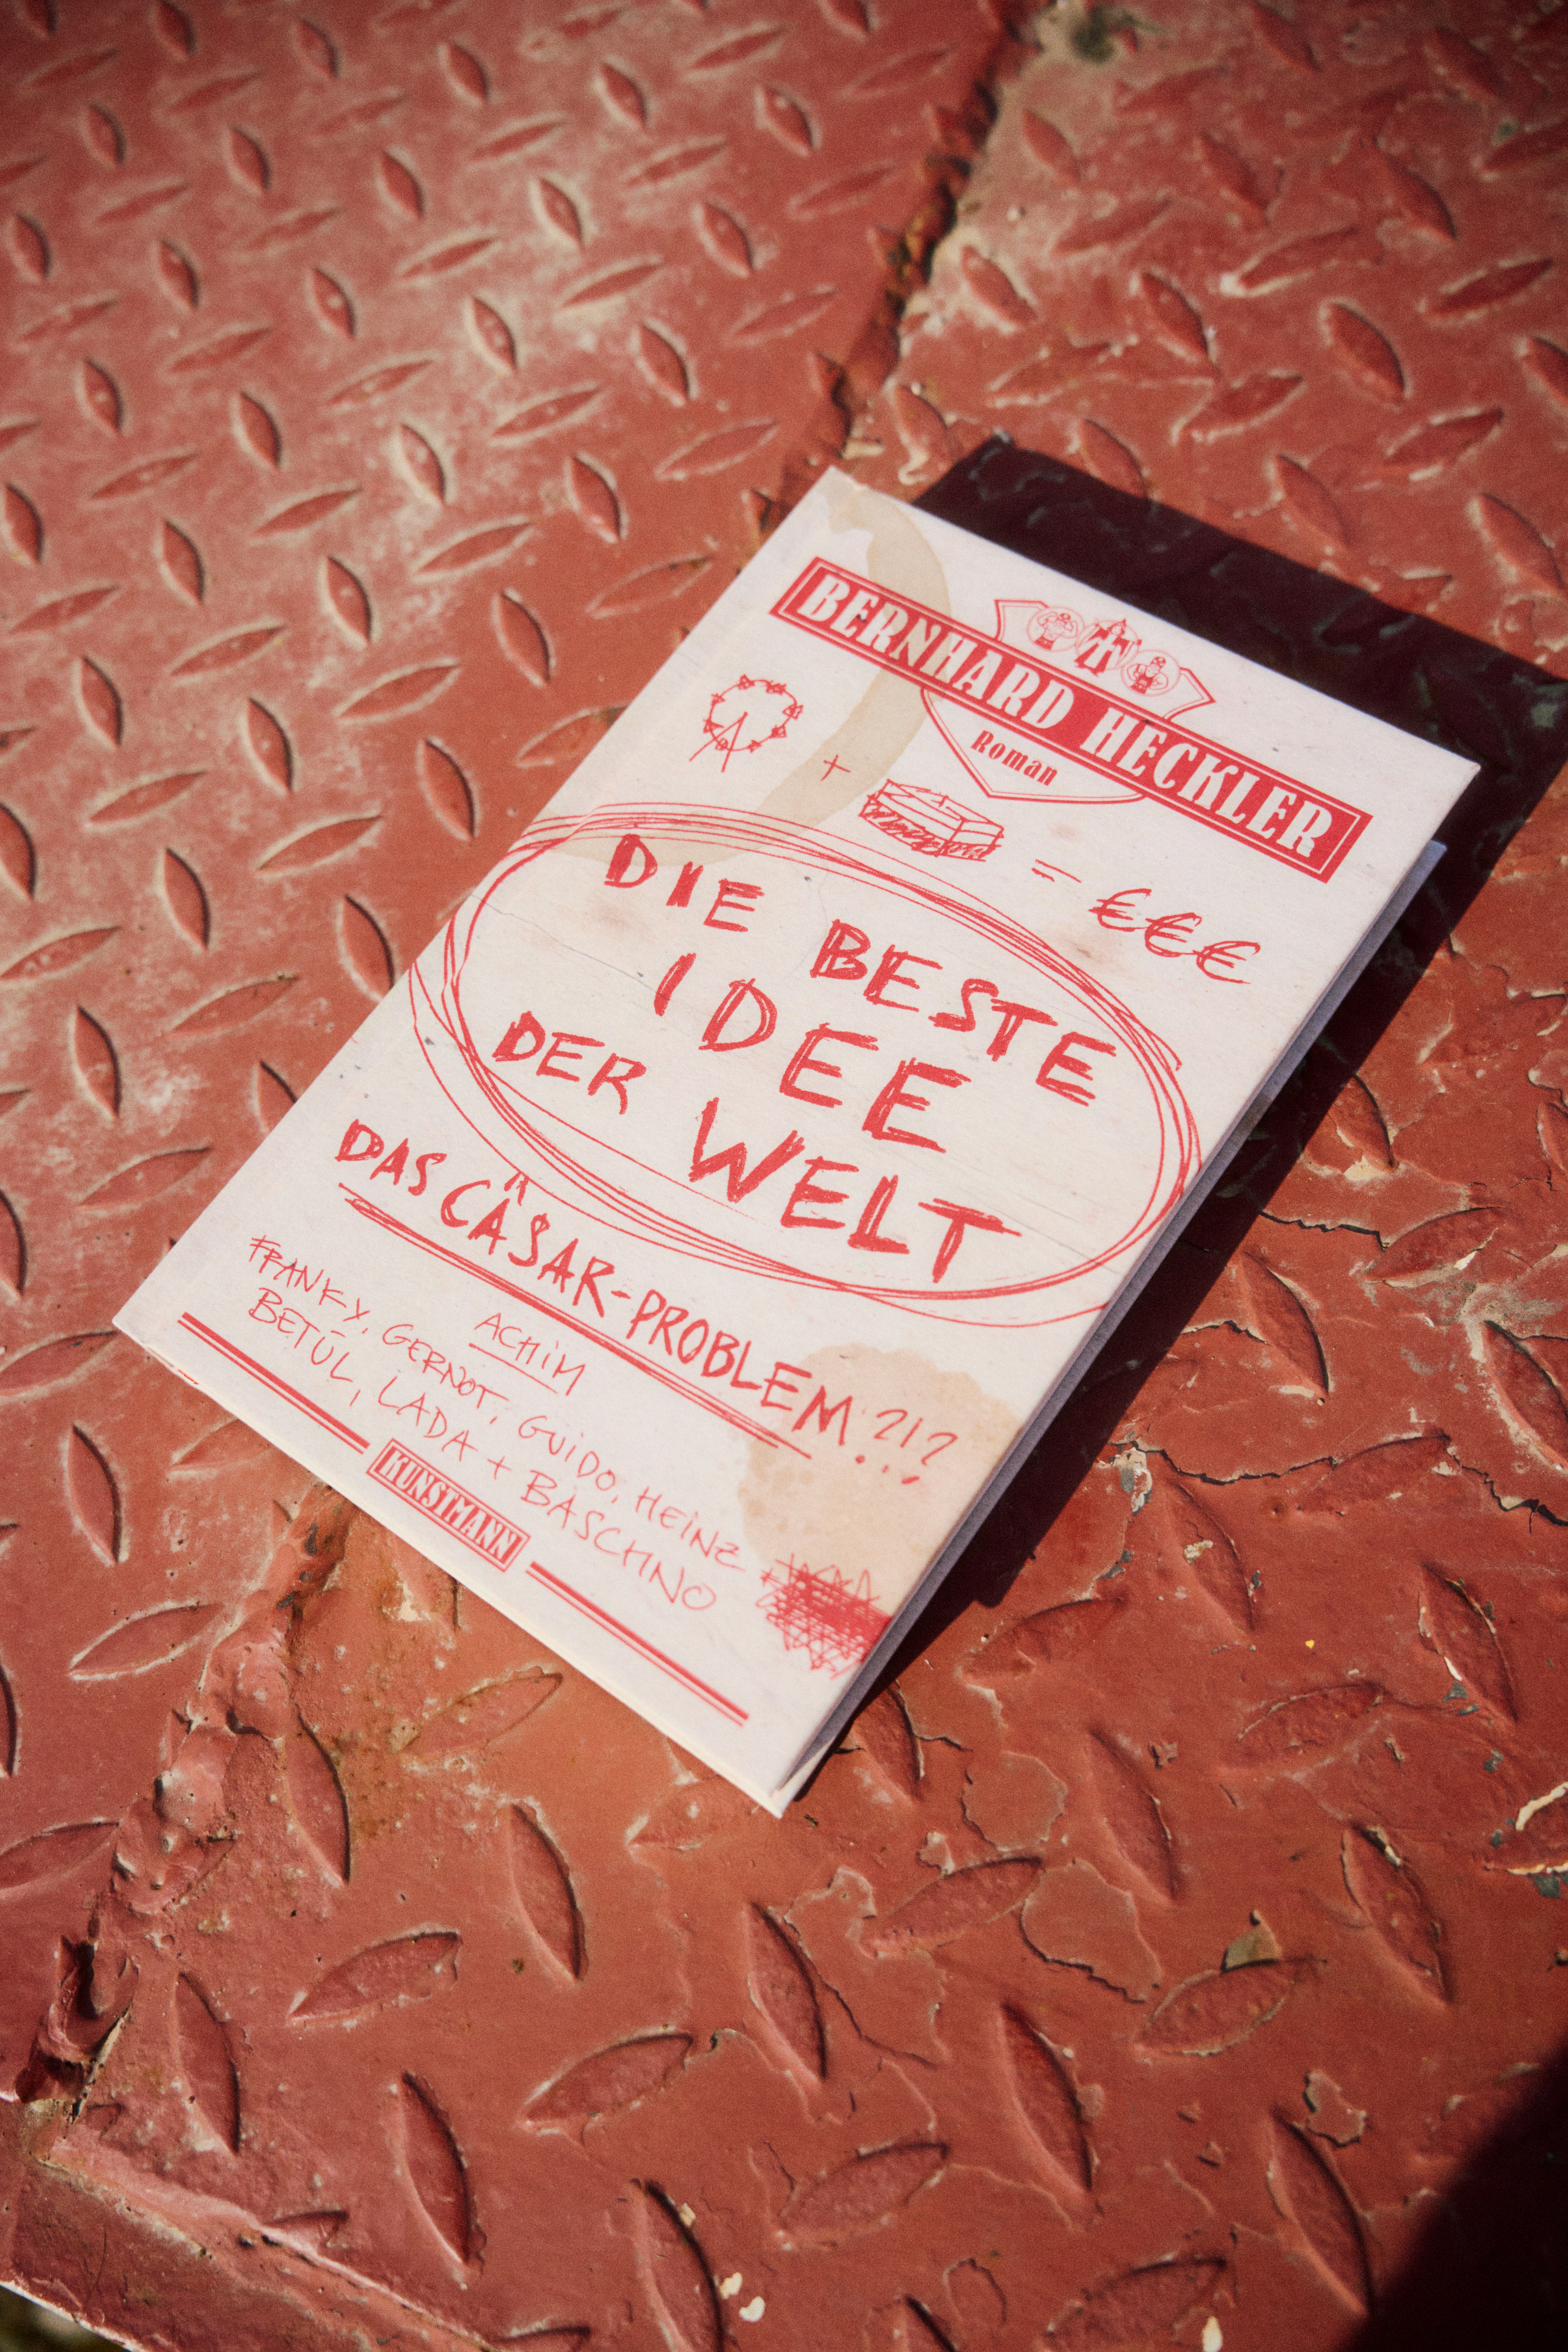 BERNHARD HECKLER
Roman
+ = €€€
DIE BESTE
IDEE
DER WELT
DAS CÄSAR-PROBLEM?!?
ACHIM
FRANKY, GERNOT, GUIDO, HEINZ
BETÜL, LADA + BASCHNO
KUNSTMANN